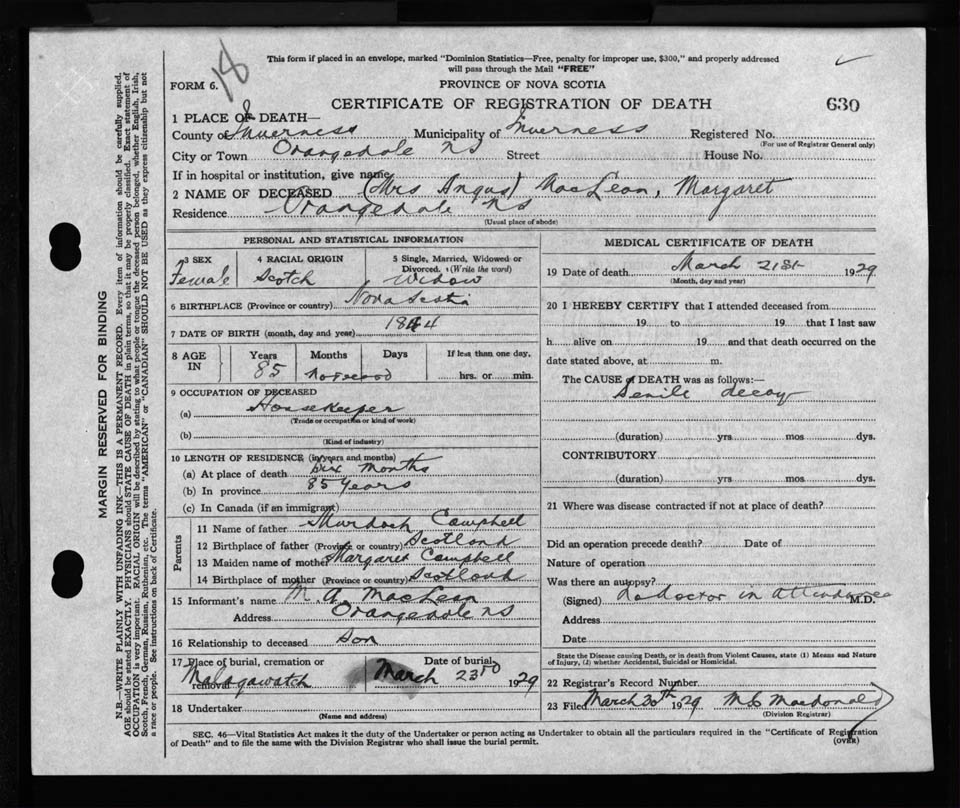 18
This form if placed in an envelope, marked "Dominion Statistics—Free, penalty for improper use, $300," and properly addressed
will pass through the Mail "FREE"
FORM 6.
PROVINCE OF NOVA SCOTIA
CERTIFICATE OF REGISTRATION OF DEATH
630
1 PLACE OF DEATH—
County of Inverness Municipality of Inverness Registered No.
(For use of Registrar General only)
City or Town Orangedale NS Street House No.
If in hospital or institution, give name
2 NAME OF DECEASED (Mrs Angus) MacLean, Margaret
Residence Orangedale NS
(Usual place of abode)
PERSONAL AND STATISTICAL INFORMATION
3 SEX 4 RACIAL ORIGIN 5 Single, Married, Widowed or
Divorced. (Write the word)
Female Scotch Widow
6 BIRTHPLACE (Province or country) Nova Scotia
7 DATE OF BIRTH (month, day and year) 1844
8 AGE IN Years Months Days If less than one day,
85 No record hrs. or min.
9 OCCUPATION OF DECEASED
(a) Housekeeper
(Trade or occupation or kind of work)
(b)
(Kind of industry)
10 LENGTH OF RESIDENCE (in years and months)
(a) At place of death Six Months
(b) In province 85 Years
(c) In Canada (if an immigrant)
Parents
11 Name of father Murdoch Campbell
12 Birthplace of father (Province or country) Scotland
13 Maiden name of mother Margaret Campbell
14 Birthplace of mother (Province or country) Scotland
15 Informant's name M. A. MacLean
Address Orangedale NS
16 Relationship to deceased Son
17 Place of burial, cremation or removal Malagawatch
Date of burial March 23rd 1929
18 Undertaker
(Name and address)
MEDICAL CERTIFICATE OF DEATH
19 Date of death March 21st 1929
(Month, day and year)
20 I HEREBY CERTIFY that I attended deceased from
19 to 19 that I last saw
h alive on 19 and that death occurred on the
date stated above, at m.
The CAUSE of DEATH was as follows:—
Senile decay
(duration) yrs mos dys.
CONTRIBUTORY
(duration) yrs mos dys.
21 Where was disease contracted if not at place of death?
Did an operation precede death? Date of
Nature of operation
Was there an autopsy?
(Signed) No doctor in attendance M.D.
Address
Date
State the Disease causing Death, or in death from Violent Causes, state (1) Means and Nature
of Injury, (2) whether Accidental, Suicidal or Homicidal.
22 Registrar's Record Number
23 Filed March 30th 1929 M C Macdonald
(Division Registrar)
SEC. 46—Vital Statistics Act makes it the duty of the Undertaker or person acting as Undertaker to obtain all the particulars required in the "Certificate of Registration
of Death" and to file the same with the Division Registrar who shall issue the burial permit.
(OVER)
MARGIN RESERVED FOR BINDING
N.B.—WRITE PLAINLY WITH UNFADING INK—THIS IS A PERMANENT RECORD. Every item of information should be carefully supplied.
AGE should be stated EXACTLY. PHYSICIANS should STATE CAUSE OF DEATH in plain terms, so that it may be properly classified. Exact statement of
OCCUPATION is very important. RACIAL ORIGIN will be described by stating to what people or tongue the deceased person belonged, whether English, Irish,
Scotch, French, German, Russian, Ruthenian, etc. The terms "AMERICAN" or "CANADIAN" SHOULD NOT BE USED as they express citizenship but not
a race or people. See instructions on back of Certificate.